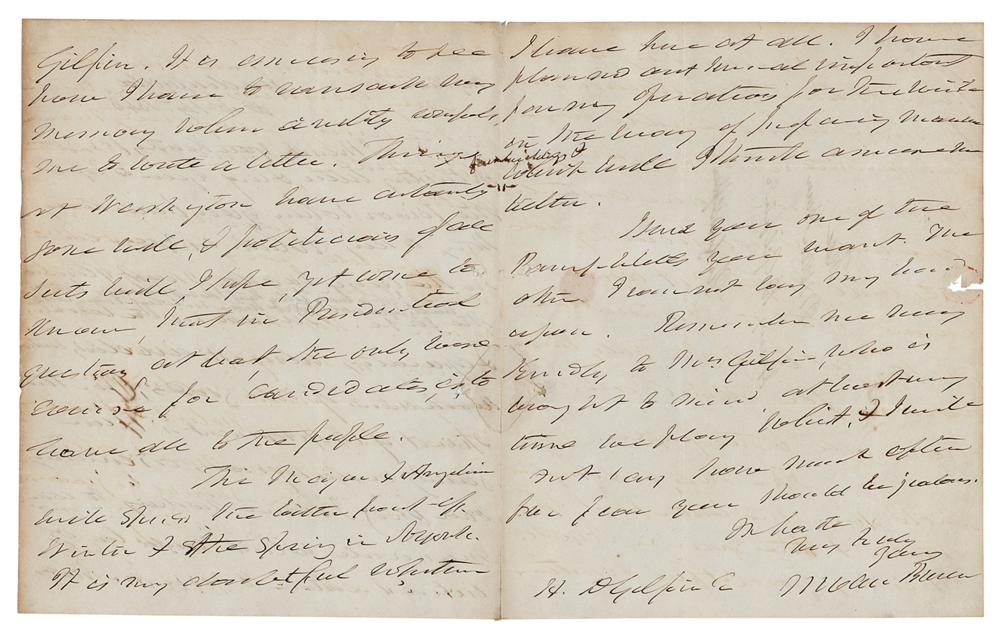 Gilpin. It is amusing to see
how I have to ransack my
memory when civility compels
me to write a letter. Things
at Washington have certainly
gone well, & politicians of all
sects will, I hope, yet come to
know, that in Presidential
questions, at least, the only wise
course for candidates, is, to
leave all to the people.
The Major & Angelica
will spend the latter part of
Winter & the Spring in NYork.
It is very doubtful whether
I leave here at all. I have
planned out several important
farming operations for the winter
in the way of preparing manure
which will I think
better.
I send you one of the
Pamphlets you want. The
other I cannot lay my hand
upon. Remember me very
kindly to Mrs Gilpin, who is
brought to mind, at least every
time we play Whist, & I will
not say how much oftener
for fear you should be jealous.
In haste
very truly
yours
H. D Gilpin E M Van Buren